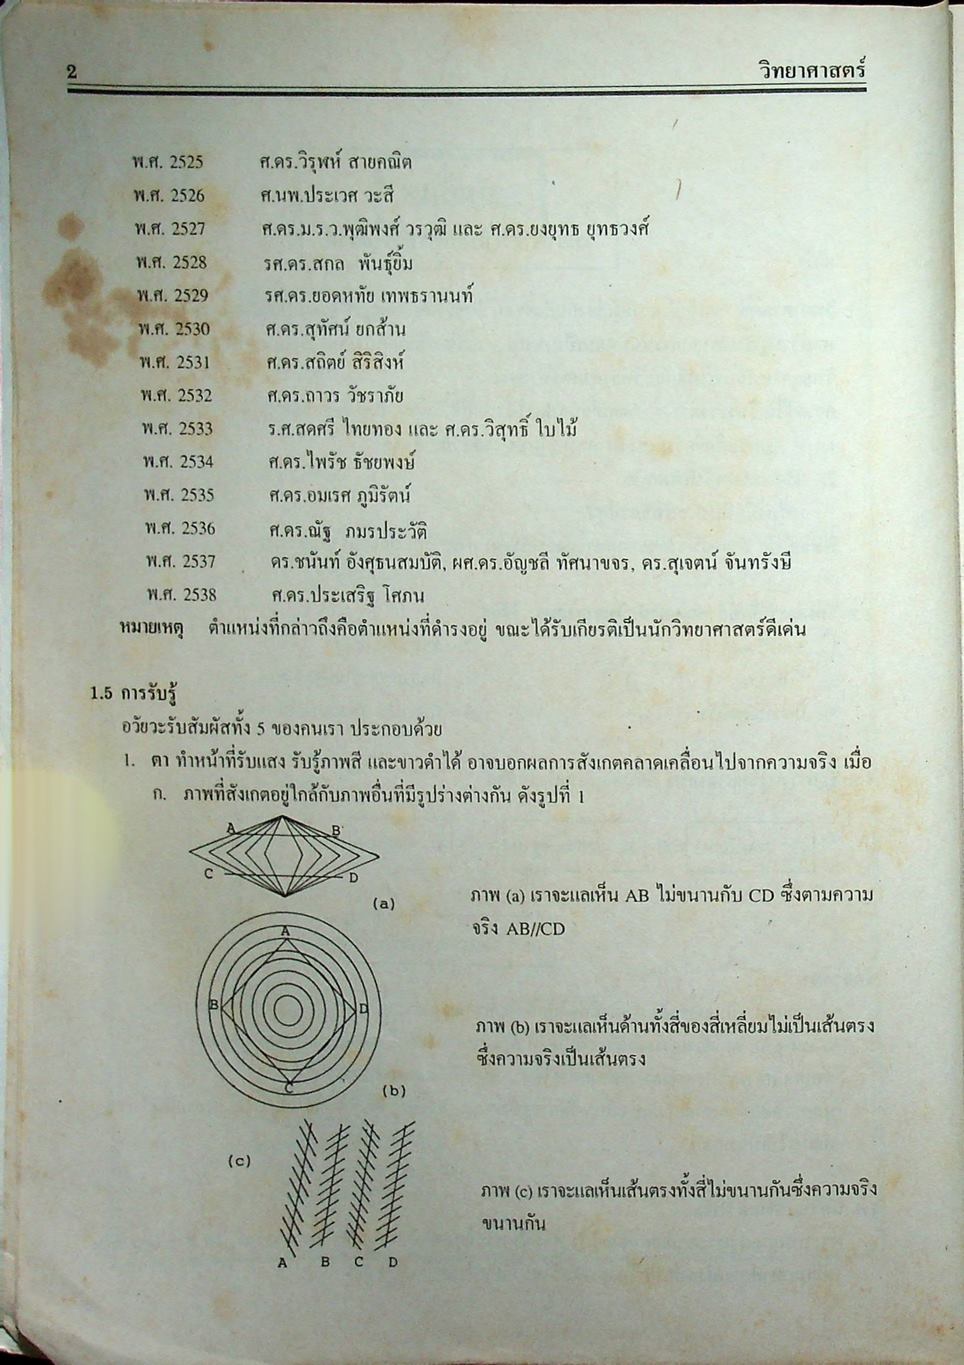 2 วิทยาศาสตร์
พ.ศ. 2525 ศ.ดร.วิรุฬห์ สายคณิต
พ.ศ. 2526 ศ.นพ.ประเวศ วะสี
พ.ศ. 2527 ศ.ดร.ม.ร.ว.พุฒิพงศ์ วรวุฒิ และ ศ.ดร.ยงยุทธ ยุทธวงศ์
พ.ศ. 2528 รศ.ดร.สกล พันธุ์ยิ้ม
พ.ศ. 2529 รศ.ดร.ยอดหทัย เทพธรานนท์
พ.ศ. 2530 ศ.ดร.สุทัศน์ ยกส้าน
พ.ศ. 2531 ศ.ดร.สถิตย์ สิริสิงห์
พ.ศ. 2532 ศ.ดร.ถาวร วัชราภัย
พ.ศ. 2533 ร.ศ.สดศรี ไทยทอง และ ศ.ดร.วิสุทธิ์ ใบไม้
พ.ศ. 2534 ศ.ดร.ไพรัช ธัชยพงษ์
พ.ศ. 2535 ศ.ดร.อมเรศ ภูมิรัตน์
พ.ศ. 2536 ศ.ดร.ณัฐ ภมรประวัติ
พ.ศ. 2537 ดร.ชนันท์ อังศุธนสมบัติ, ผศ.ดร.อัญชลี ทัศนาขจร, ดร.สุเจตน์ จันทรังษี
พ.ศ. 2538 ศ.ดร.ประเสริฐ โศภน
หมายเหตุ ตำแหน่งที่กล่าวถึงคือตำแหน่งที่ดำรงอยู่ ขณะได้รับเกียรติเป็นนักวิทยาศาสตร์ดีเด่น
1.5 การรับรู้
อวัยวะรับสัมผัสทั้ง 5 ของคนเรา ประกอบด้วย
1. ตา ทำหน้าที่รับแสง รับรู้ภาพสี และขาวดำได้ อาจบอกผลการสังเกตคลาดเคลื่อนไปจากความจริง เมื่อ
ก. ภาพที่สังเกตอยู่ใกล้กับภาพอื่นที่มีรูปร่างต่างกัน ดังรูปที่ 1
A B
C D
(a)
ภาพ (a) เราจะแลเห็น AB ไม่ขนานกับ CD ซึ่งตามความ
จริง AB//CD
A
B D
C
(b)
ภาพ (b) เราจะแลเห็นด้านทั้งสี่ของสี่เหลี่ยมไม่เป็นเส้นตรง
ซึ่งความจริงเป็นเส้นตรง
(c)
A B C D
ภาพ (c) เราจะแลเห็นเส้นตรงทั้งสี่ไม่ขนานกันซึ่งความจริง
ขนานกัน